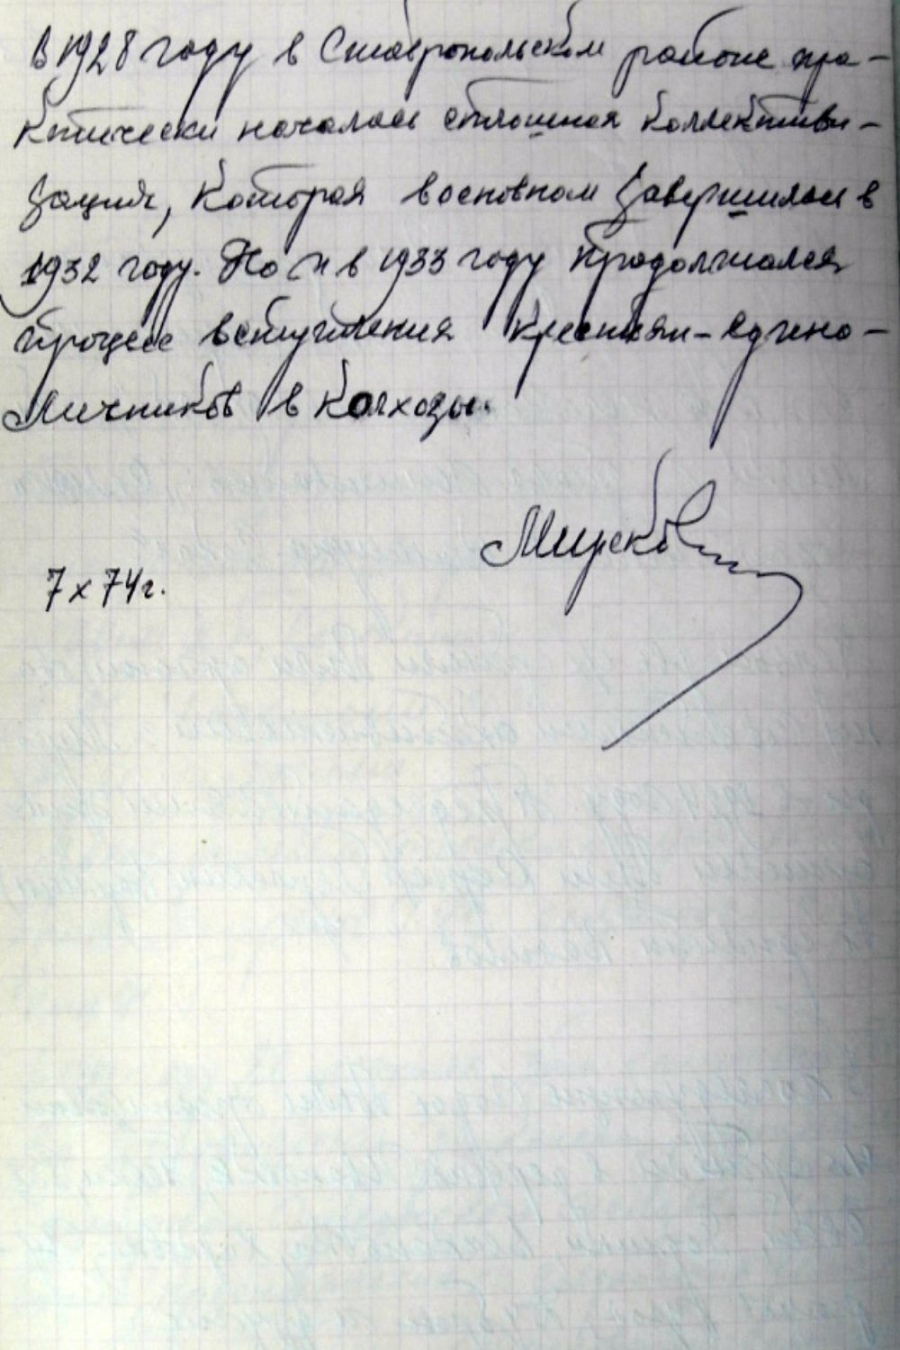 В 1928 году в Ставропольском районе пра-
ктически началась сплошная коллективи-
зация, которая восновном завершилась в
1932 году. Но и в 1933 году продолжался
процесс вступления крестьян-едино-
личников в колхозы.
7 х 74г.